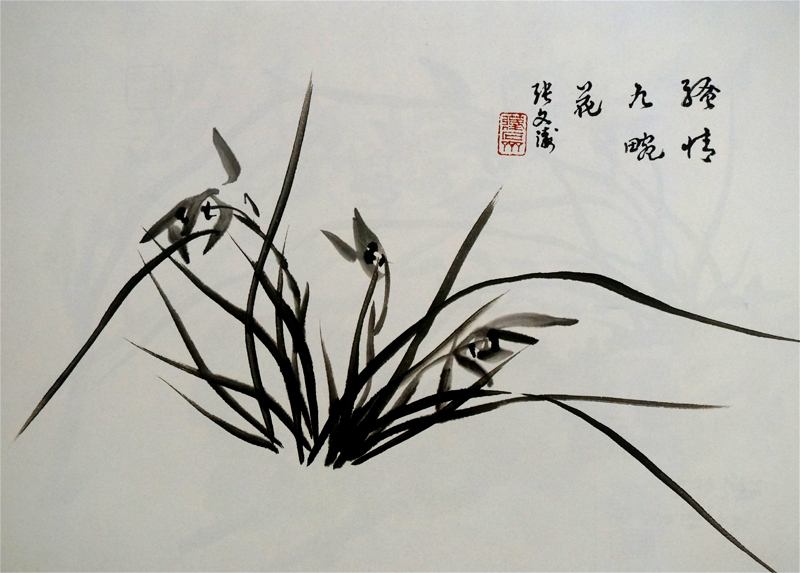 骚情
九畹
花
张文涛